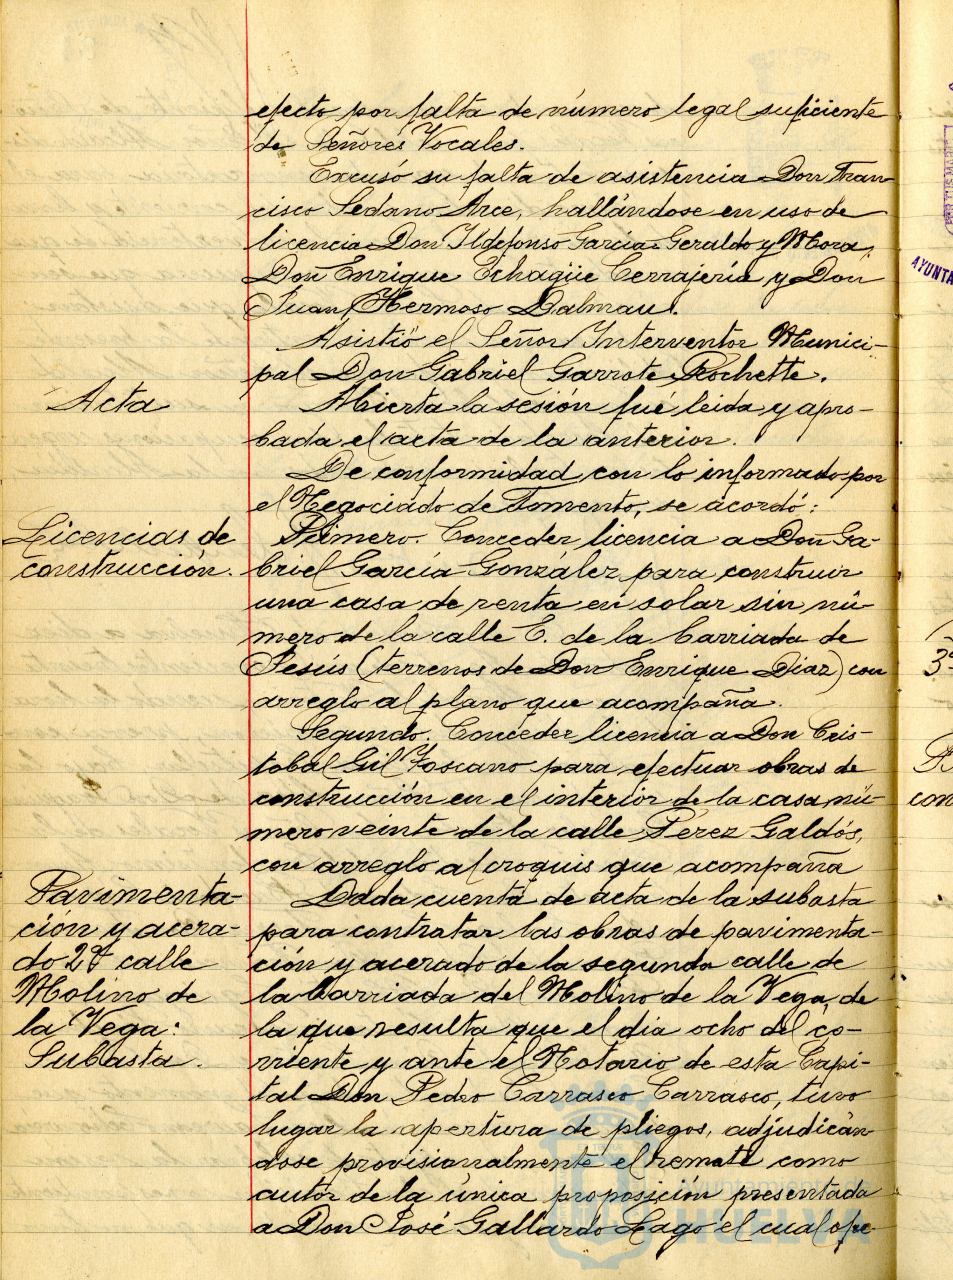 efecto por falta de número legal suficiente
de Señores Vocales.
Excusó su falta de asistencia Don Fran-
cisco Sedano Arce, hallándose en uso de
licencia Don Ildefonso García Geraldo y Mora,
Don Enrique Echagüe Cerrajería y Don
Juan Hermoso Dalmau.
Asistió el Señor Interventor Munici-
pal Don Gabriel Garrote Rochette.
Acta
Abierta la sesión fué leida y apro-
bada el acta de la anterior.
De conformidad con lo informado por
el Negociado de Fomento, se acordó:
Licencias de
construcción.
Primero. Conceder licencia a Don Ga-
briel García González para construir
una casa de renta en solar sin nú-
mero de la calle C. de la barriada de
Jesús (terrenos de Don Enrique Diaz) con
arreglo al plano que acompaña.
Segundo. Conceder licencia a Don Cris-
tobal Gil Toscano para efectuar obras de
construcción en el interior de la casa nú-
mero veinte de la calle Pérez Galdós,
con arreglo al croquis que acompaña
Pavimenta-
ción y acera-
do 2ª calle
Molino de
la Vega:
Subasta.
Dada cuenta de acta de la subasta
para contratar las obras de pavimenta-
ción y acerado de la segunda calle de
la barriada del Molino de la Vega, de
la que resulta que el dia ocho del co-
rriente y ante el Notario de esta Capi-
tal Don Pedro Carrasco Carrasco, tuvo
lugar la apertura de pliegos, adjudicán-
dose provisionalmente el remate como
autor de la única proposición presentada
a Don José Gallardo Lago el cual ofre-
Ayuntamiento de
HUELVA
3ª
con
AYUNTA